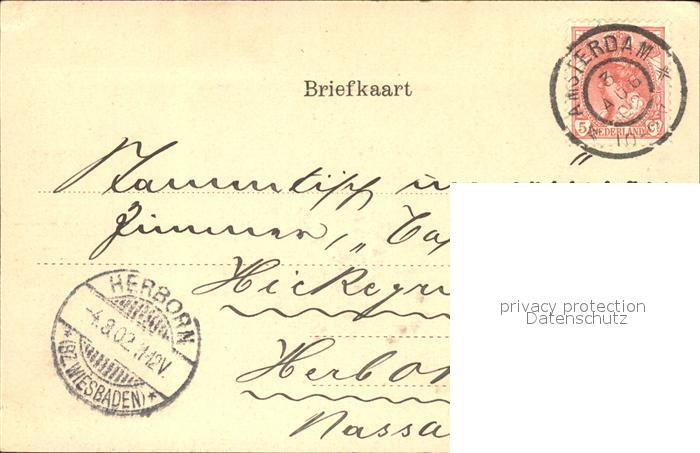 Briefkaart
AMSTERDAM *
3 AUG
5 Ct
NEDERLAND
Stammtisch
Zimmer, "
Hickegru
Herbor
Nassa
HERBORN
-4.8.02. 11-12V.
*(BZ.WIESBADEN)*
privacy protection
Datenschutz